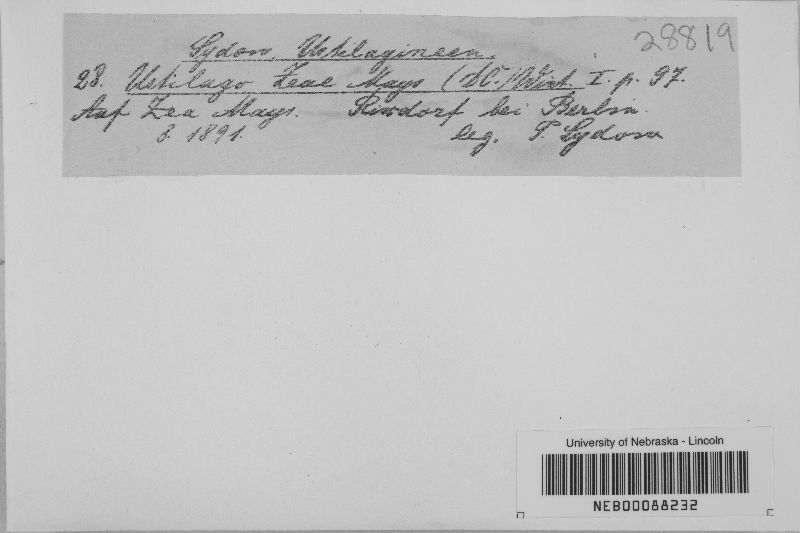 28819
Sydow, Ustilagineen.
28. Ustilago Zeae Mays (DC.) Wint. I. p. 97.
Auf Zea Mays. Rixdorf bei Berlin.
8. 1891. leg. P. Sydow
University of Nebraska - Lincoln
NEB00088232